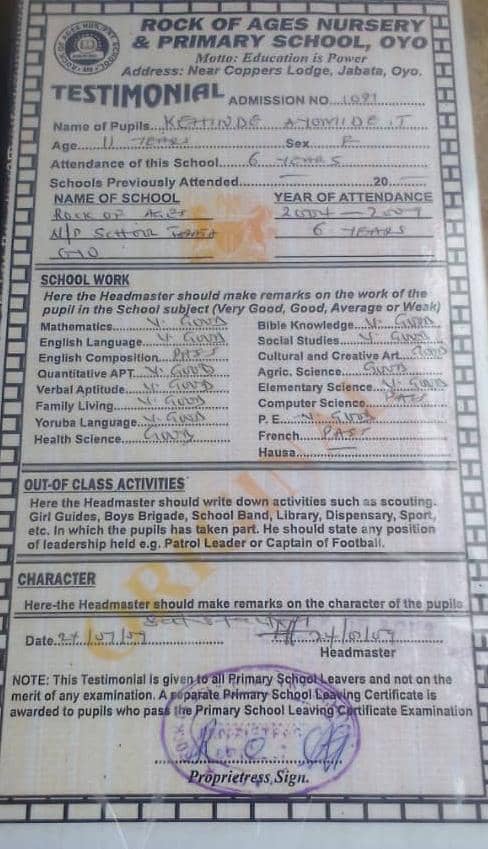 ROCK OF AGES NURSERY
& PRIMARY SCHOOL, OYO
Motto: Education is Power
Address: Near Coppers Lodge, Jabata, Oyo.
TESTIMONIAL
ADMISSION NO...1091
Name of Pupils...KEHINDE AYOMIDE .T
Age...11 YEARS...Sex...F
Attendance of this School...6 YEARS
Schools Previously Attended...20...
NAME OF SCHOOL YEAR OF ATTENDANCE
ROCK OF AGES 2004 – 2009
N/P SCHOOL 6 YEARS
OYO
SCHOOL WORK
Here the Headmaster should make remarks on the work of the
pupil in the School subject (Very Good, Good, Average or Weak)
Mathematics...V. GOOD
English Language...V. GOOD
English Composition...PASS
Quantitative APT...V. GOOD
Verbal Aptitude...V. GOOD
Family Living...V. GOOD
Yoruba Language...V. GOOD
Health Science...GOOD
Bible Knowledge...V. GOOD
Social Studies...V. GOOD
Cultural and Creative Art...GOOD
Agric. Science...GOOD
Elementary Science...V. GOOD
Computer Science...PASS
P. E...V. GOOD
French...PASS
Hausa...
OUT-OF CLASS ACTIVITIES
Here the Headmaster should write down activities such as scouting.
Girl Guides, Boys Brigade, School Band, Library, Dispensary, Sport,
etc. In which the pupils has taken part. He should state any position
of leadership held e.g. Patrol Leader or Captain of Football.
CHARACTER
Here-the Headmaster should make remarks on the character of the pupils
Date...24/07/09
Headmaster
NOTE: This Testimonial is given to all Primary School Leavers and not on the
merit of any examination. A separate Primary School Leaving Certificate is
awarded to pupils who pass the Primary School Leaving Certificate Examination
PROPRIETRESS
Proprietress, Sign.
ORIGINAL